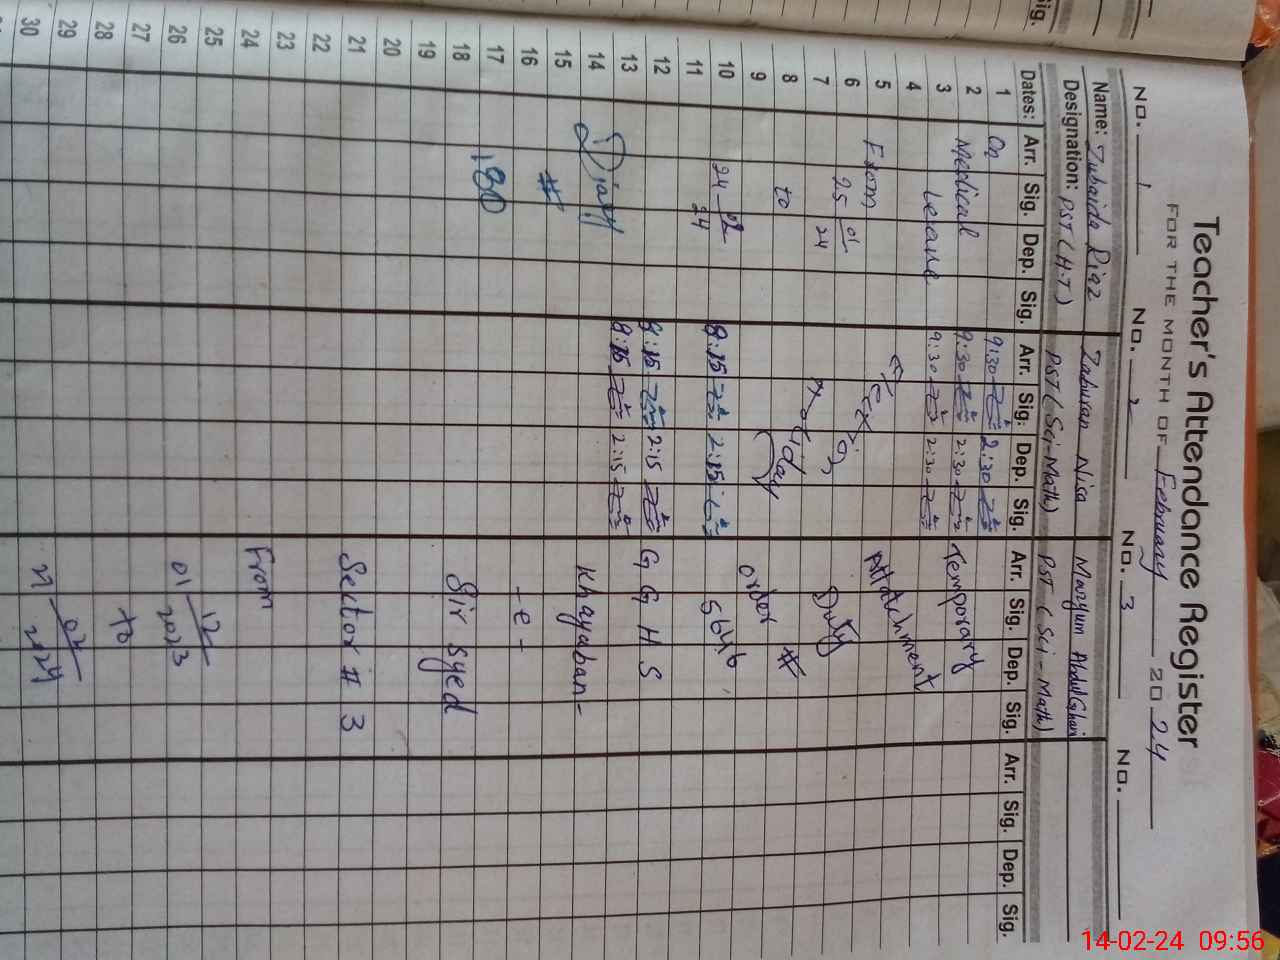 Teacher's Attendance Register
FOR THE MONTH OF February 2024
No. 1 No. 2 No. 3 No.
Name: Zubaida Riaz Zaburan Nisa Maryum Abdul Ghani
Designation: PST (H.T) PST (Sci-Math) PST (Sci-Math)
Dates: Arr. Sig. Dep. Sig. Arr. Sig. Dep. Sig. Arr. Sig. Dep. Sig. Arr. Sig. Dep. Sig.
1 On 9:30 2:30
2 Medical 9:30 2:30 Temporary
3 Leave 9:30 2:30
4 Attachment
5 From
6 25 01
7 24 Duty
8 to day #
9 order
10 24 02 8:15 2:15 5646
11 24
12 8:15 2:15 G G H S
13 8:15 2:15
14 Diary Khayaban-
15 #
16 -e-
17 180
18 Sir Syed
19
20
21 Sector # 3
22
23
24 From
25 12
26 01 2023
27
28 to
29 02
30 21 2024
Sig.
14-02-24 09:56